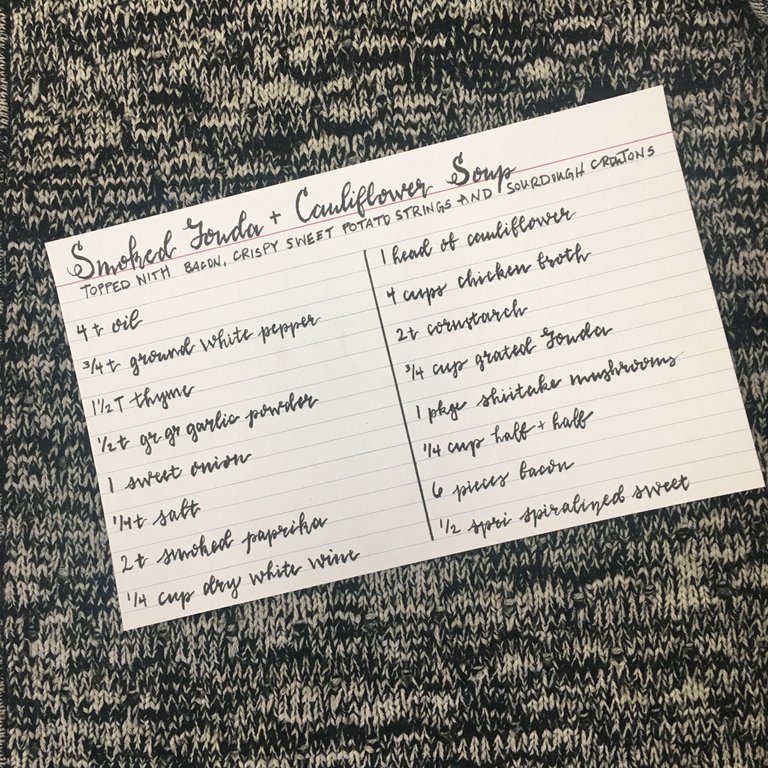 Smoked Gouda + Cauliflower Soup
TOPPED WITH BACON, CRISPY SWEET POTATO STRINGS AND SOURDOUGH CROUTONS
4 t oil
3/4 t ground white pepper
1 1/2 T thyme
1/2 t gr gr garlic powder
1 sweet onion
1/4 t salt
2 t smoked paprika
1/4 cup dry white wine
1 head of cauliflower
4 cups chicken broth
2 t cornstarch
3/4 cup grated Gouda
1 pkge shiitake mushrooms
1/4 cup half + half
6 pieces bacon
1/2 spri spiralized sweet